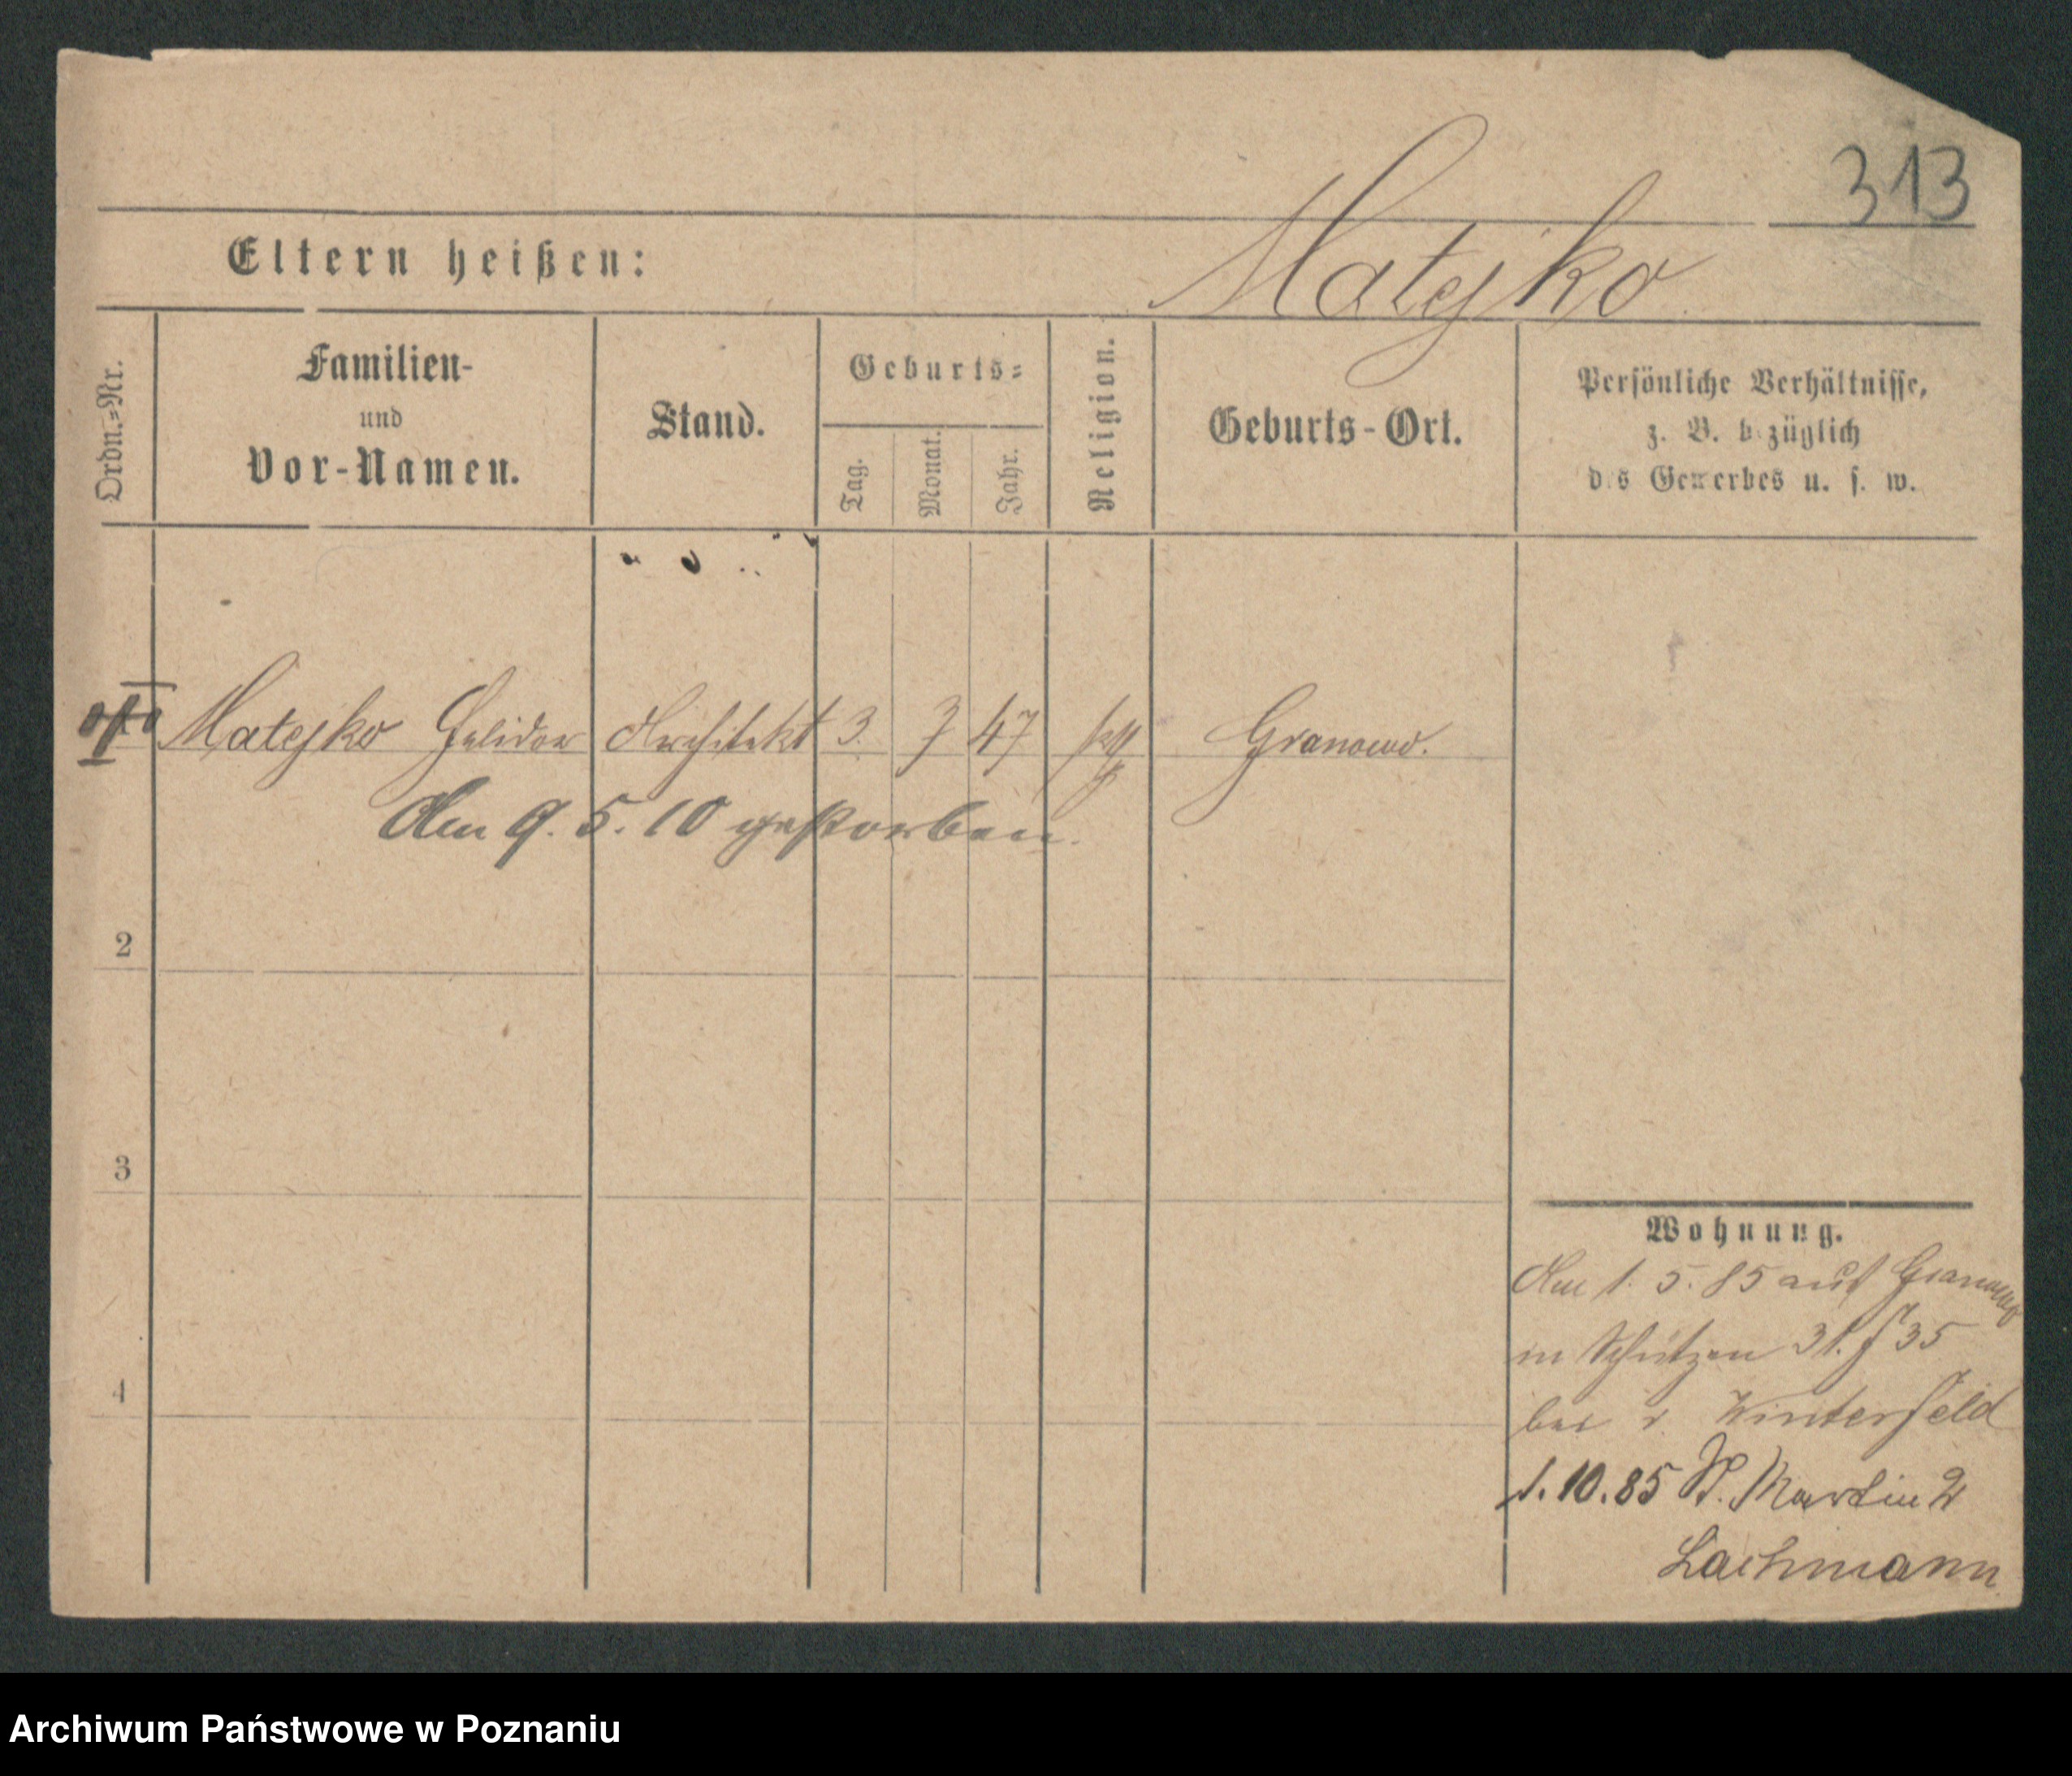 313
Eltern heißen:
Matejko
Ordn.=Nr.
Familien-
und
Vor-Namen.
Stand.
Geburts=
Tag.
Monat.
Jahr.
Religion.
Geburts-Ort.
Persönliche Verhältnisse,
z. B. bezüglich
des Gewerbes u. s. w.
Matejko Architekt 3. 7 47 Granowo.
Am 9. 5. 10 gestorben.
2
3
4
Wohnung.
Am 1. 5. 85 aus Granowo
in Schützen
bei v. Winterfeld
1.10.85 St. Martin 2
Lachmann
Archiwum Państwowe w Poznaniu